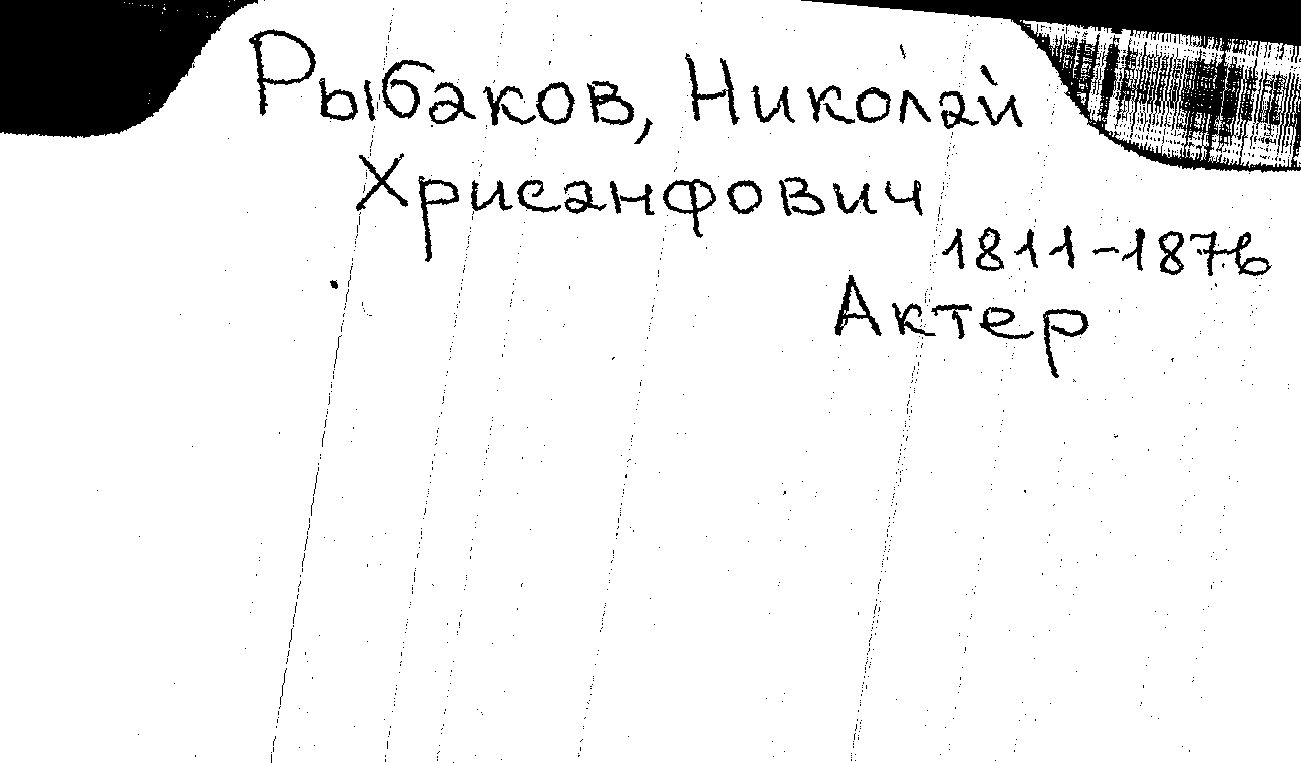 Рыбаков, Николай
Хрисанфович
1811-1876
Актер